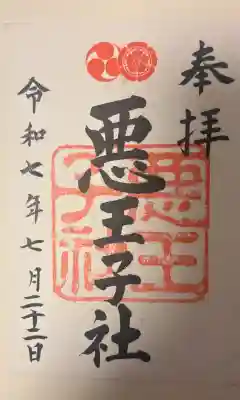 奉拝
悪王子社
令和七年七月二十二日
悪王
子社